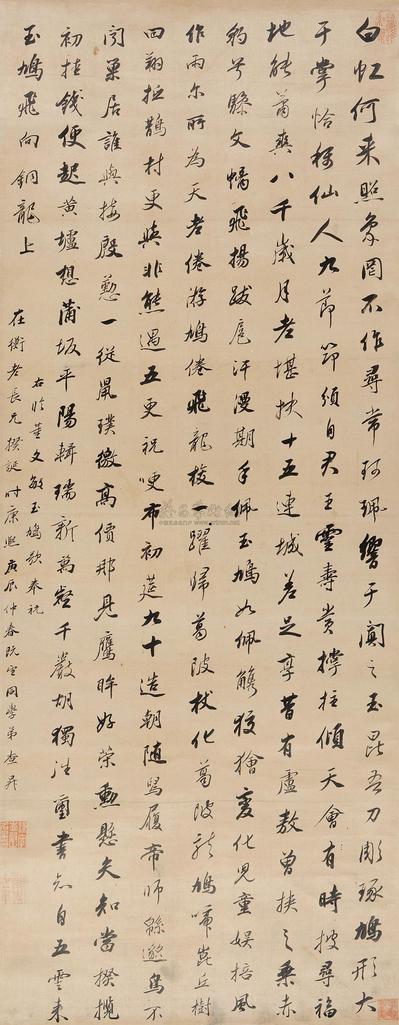 白虹何来照象罔不作寻常珂珮响于阗之玉昆吾刀雕琢鸠形大
于掌恰称仙人九节筇须自君王灵寿贵撑拄倾天会有时披寻福
地能萧爽八千岁月老堪扶十五连城差足享昔有卢敖曾挟之乘赤
豹兮骖文螭飞扬跋扈汗漫期手佩玉鸠如佩觿狡狯变化儿童娱培风
作雨尔所为天老倦游鸠倦飞龙梭一跃归葛陂杖化葛陂龙鸠啼昆丘树
四翔拉鹊村更与非熊遇五更祝哽布初筵九十造朝随舄履帝师绵邈乌不
闻巢居谁与接殷懃一从鼠璞徼高价那见鹰眸好荣勲悬矢知当揆揽
初挂钱便起黄垆想蒲坂平阳辑瑞新万壑千岩胡独往玺书忽自五云来
玉鸠飞向铜龙上
右临董文敏玉鸠歌奉祝
在衡老长兄揆诞时康熙庚辰仲春既望同学弟查昇